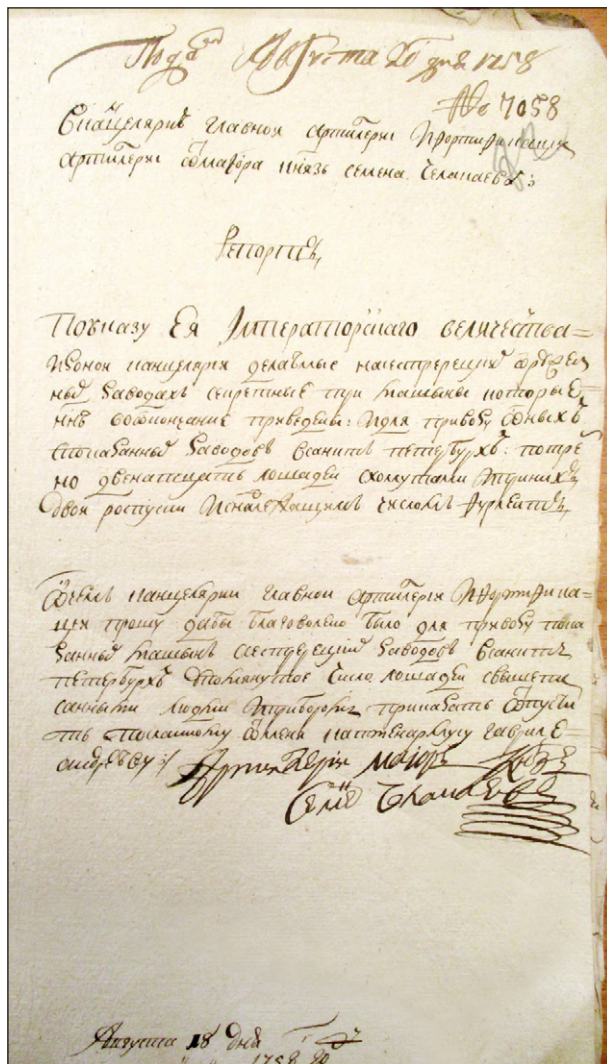 Пода<sup>н</sup> Августа 20 дня 1758
№ 7058
Вканцелярию главной артилерии ифортификации
артилерии отмаэора князь семена челакаева:
Репортъ,
Поуказу Ея Императорскаго величества
канцелярия делаемые насестрорецких оружей
ных заводахъ секретные три машины которые
ноне вокончание приведены: идля привозу оных
споказанных заводовъ всанктъ петербурхъ: потре
но двенатцать лошадей схомутами итриних
двои роспуски инадлежащимъ числомъ фурлейтъ,
канцелярии главной артилерии ифортифика=
ция прошу дабы благоволено было для привозу пока
занных машинъ ссестрорецких заводовъ всанктъ
петербурхъ упомянутое число лошадей свышепи
санными людми иприборомъ приказать отпусти
ть посланному отменя каптенармусу гавриле
андрееву:/ Артиллерии маіоръ Князь
Семенъ Челакаевъ
Августа 18 дня
1758 го